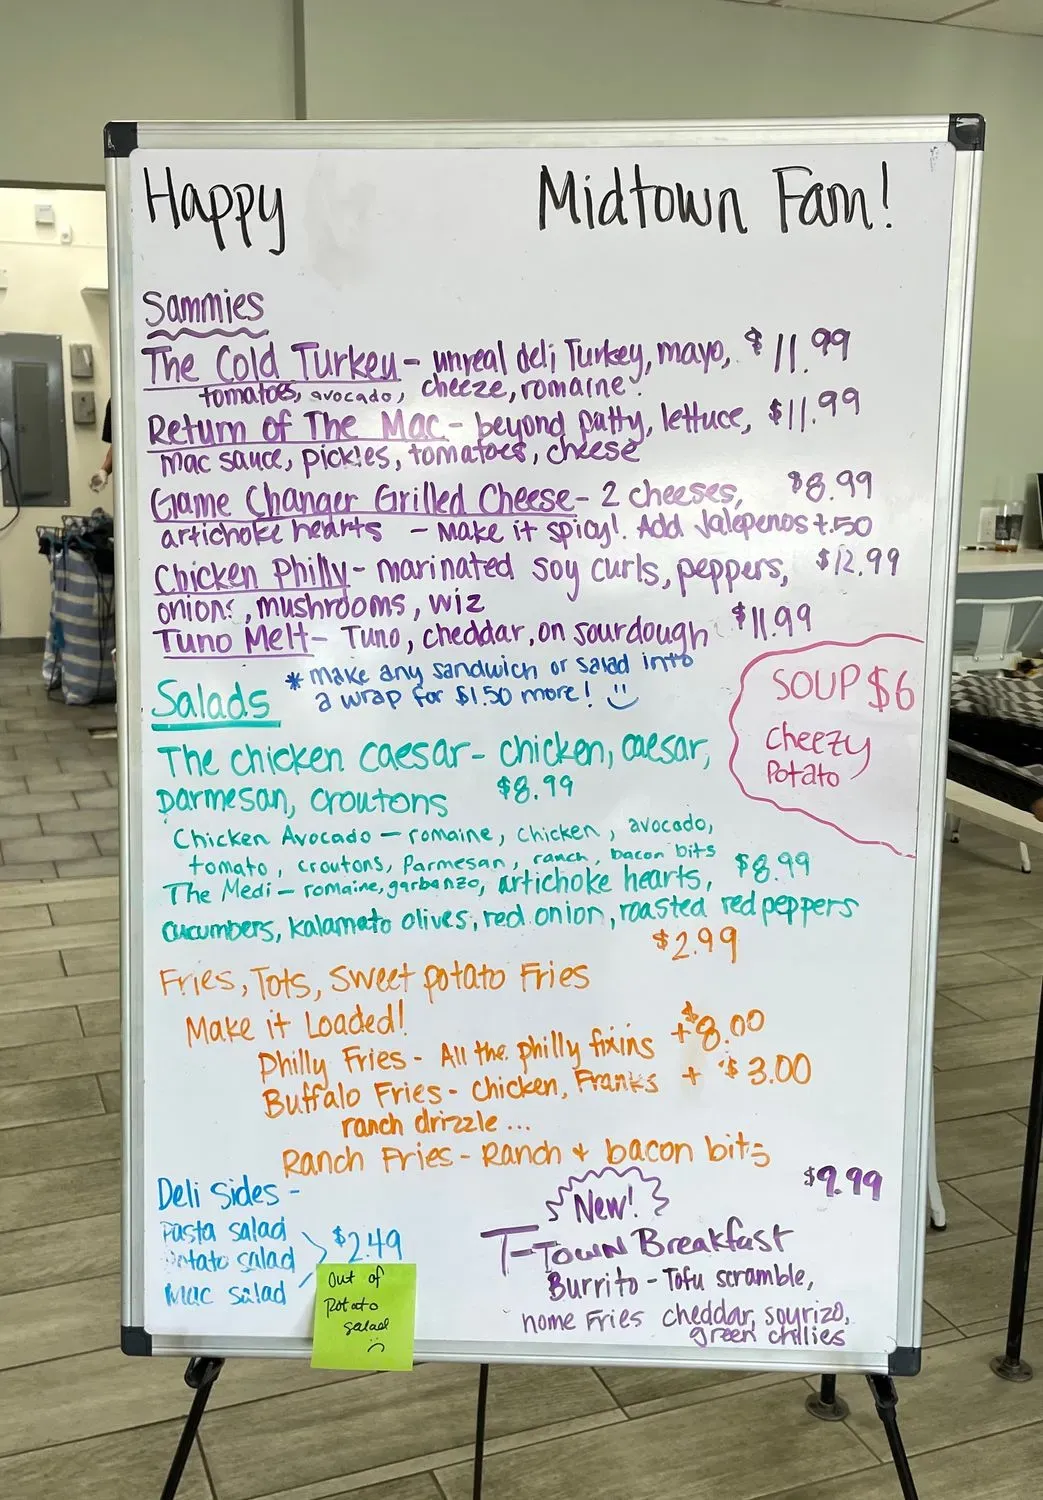 Happy Midtown Fam!
Sammies
The Cold Turkey - unreal deli Turkey, mayo, $11.99
tomatoes, avocado, cheeze, romaine
Return of The Mac - beyond patty, lettuce, $11.99
mac sauce, pickles, tomatoes, cheese
Game Changer Grilled Cheese - 2 cheeses, $8.99
artichoke hearts - Make it spicy! Add Jalepenos +.50
Chicken Philly - marinated soy curls, peppers, $12.99
onions, mushrooms, wiz
Tuno Melt - Tuno, cheddar, on sourdough $11.99
* make any sandwich or salad into
a wrap for $1.50 more!
Salads
SOUP $6
Cheezy
Potato
The chicken caesar - chicken, caesar,
parmesan, croutons $8.99
Chicken Avocado - romaine, chicken, avocado,
tomato, croutons, Parmesan, ranch, bacon bits
The Medi - romaine, garbanzo, artichoke hearts, $8.99
cucumbers, kalamato olives, red onion, roasted red peppers
$2.99
Fries, Tots, Sweet potato Fries
Make it Loaded!
Philly Fries - All the philly fixins +$8.00
Buffalo Fries - Chicken, Franks + $3.00
ranch drizzle ...
Ranch Fries - Ranch & bacon bits
Deli Sides -
Pasta salad
Potato salad $2.49
Mac salad
Out of
Potato
salad
$9.99
New!
T-Town Breakfast
Burrito - Tofu scramble,
home Fries cheddar, soyrizo,
green chillies